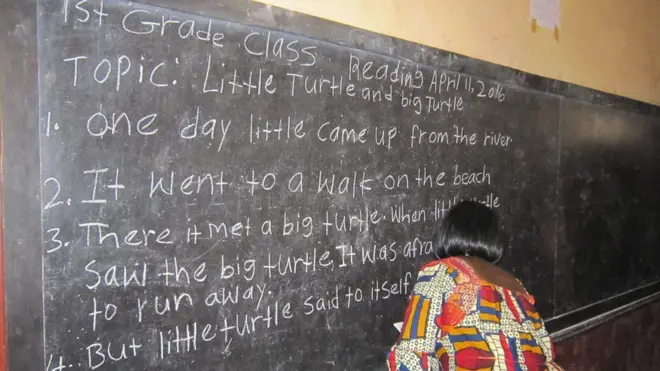 1st Grade Class Reading April 11, 2016
TOPIC: Little Turtle and big Turtle
1. One day little come up from the river
2. It went to a walk on the beach
3. There it met a big turtle. When
saw the big turtle, It was
to run away.
4. But little turtle said to itself